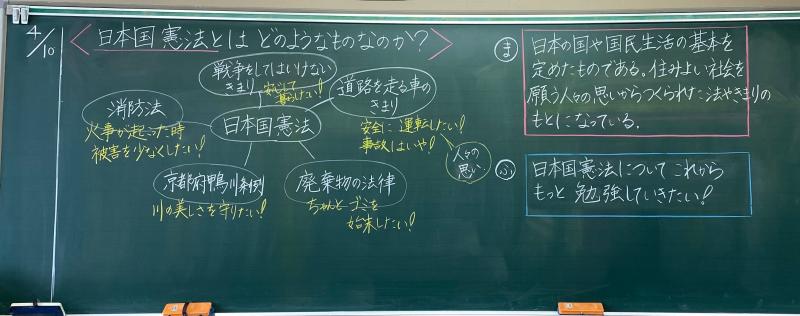 4/10
<日本国憲法とは どのようなものなのか?>
戦争をしてはいけない
きまり
安心して
暮らしたい!
道路を走る車の
きまり
安全に運転したい!
事故はいや!
人々の
思い
消防法
火事が起こった時
被害を少なくしたい!
日本国憲法
京都府鴨川条例
川の美しさを守りたい!
廃棄物の法律
ちゃんとゴミを
始末したい!
ま
日本の国や国民生活の基本を
定めたものである。住みよい社会を
願う人々の思いからつくられた法やきまりの
もとになっている。
ふ
日本国憲法について これから
もっと 勉強していきたい!